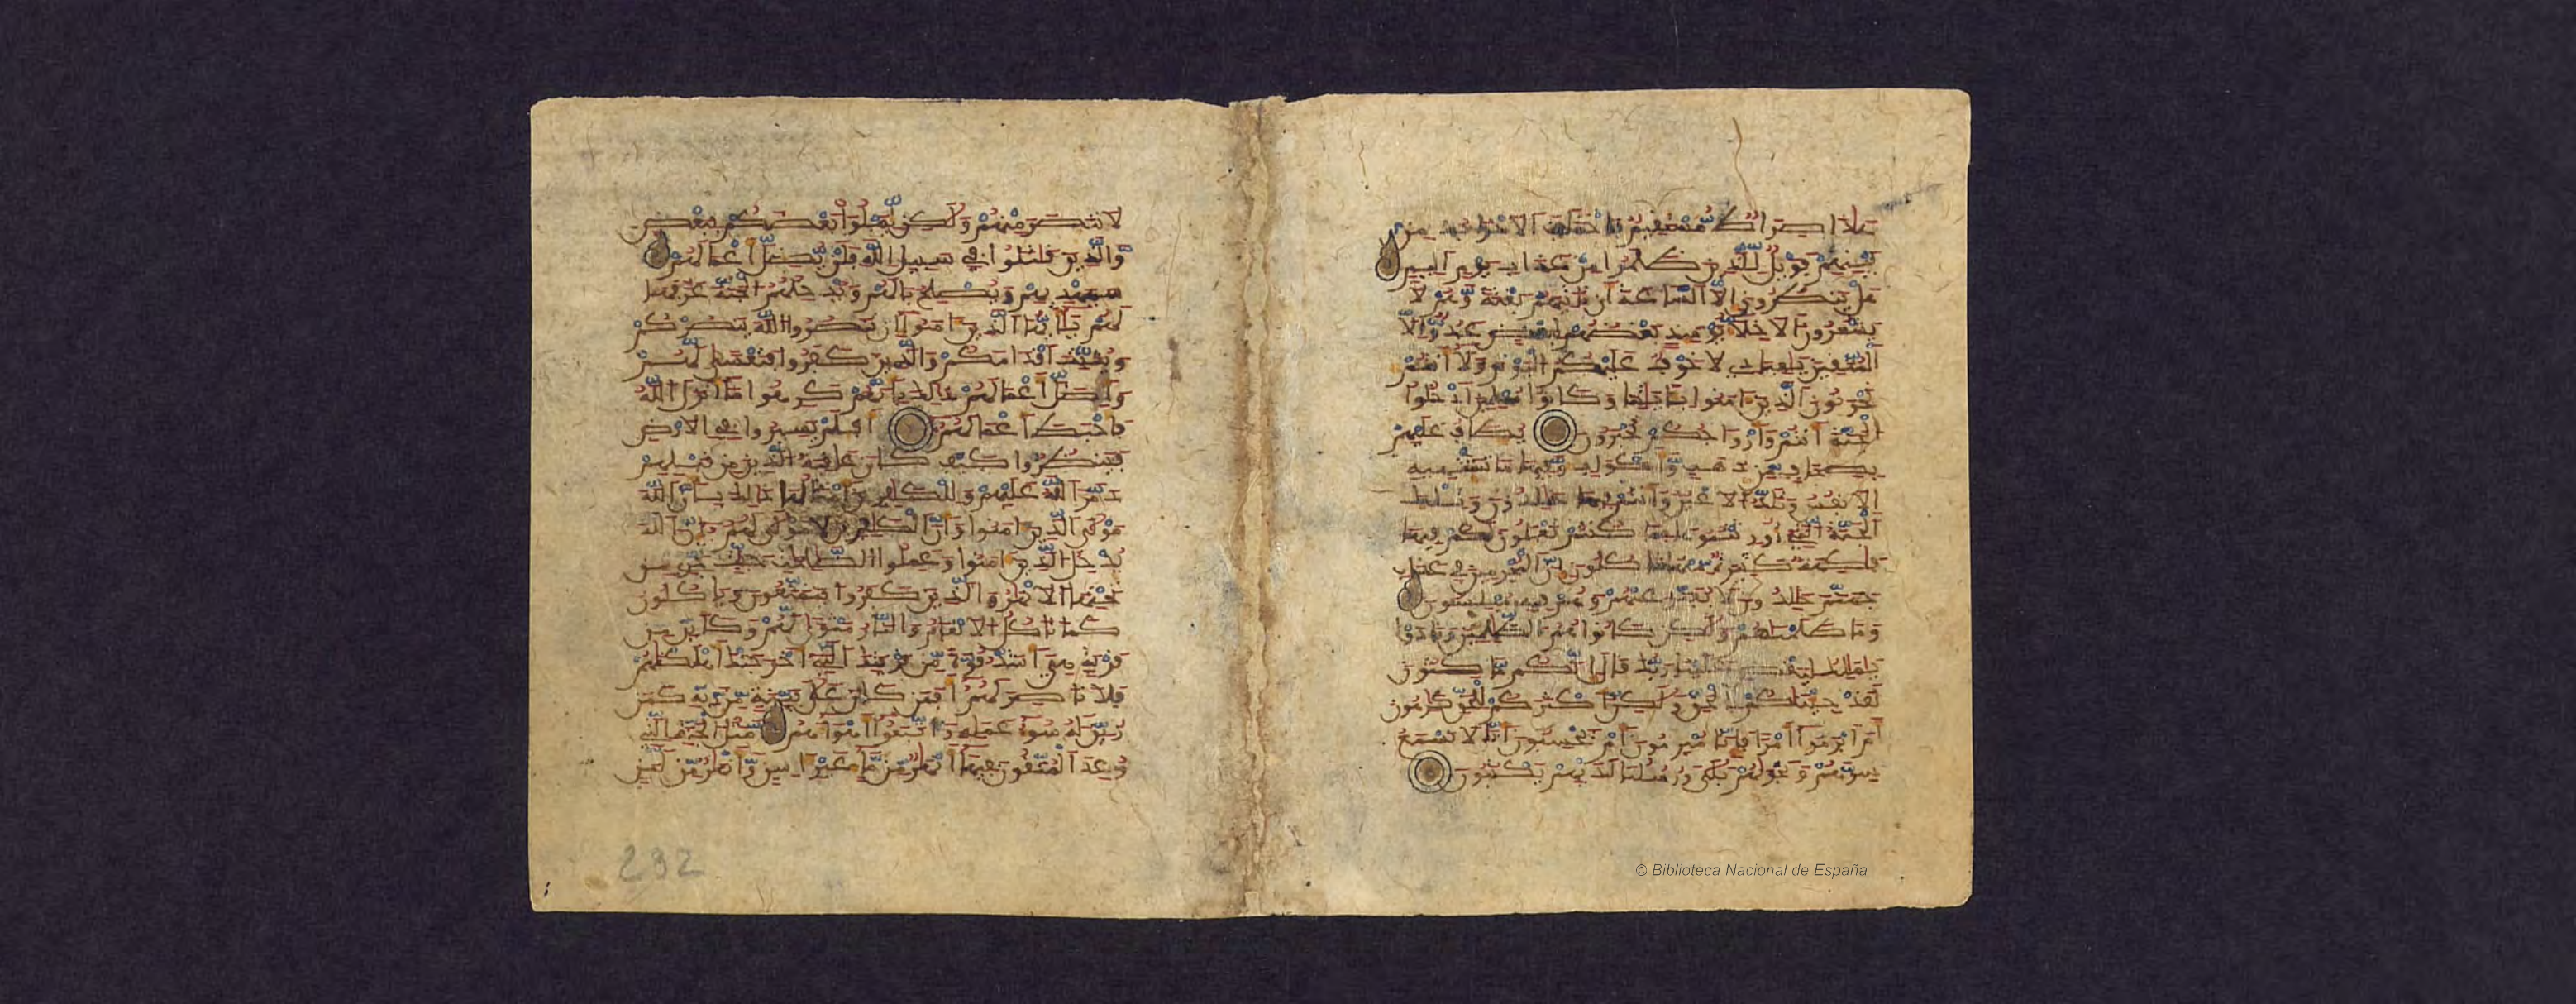 هذا صراط مستقيم فاختلف الاحزاب من
بينهم فويل للذين ظلموا من عذاب يوم اليم
هل ينظرون الا الساعة ان تاتيهم بغتة وهم لا
يشعرون الاخلاء يومئذ بعضهم لبعض عدو الا
المتقين يعبادي لا خوف عليكم اليوم ولا انتم
تحزنون الذين امنوا بايتنا وكانوا مسلمين ادخلوا
الجنة انتم وازواجكم تحبرون يطاف عليهم
بصحاف من ذهب واكواب وفيها ما تشتهيه
الانفس وتلذ الاعين وانتم فيها خلدون وتلك
الجنة التي اورثتموها بما كنتم تعملون لكم فيها
فكهة كثيرة منها تاكلون ان المجرمين في عذاب
جهنم خلدون لا يفتر عنهم وهم فيه مبلسون
وما ظلمنهم ولكن كانوا هم الظلمين ونادوا
يملك ليقض علينا ربك قال انكم مكثون
لقد جئنكم بالحق ولكن اكثركم للحق كرهون
ام ابرموا امرا فانا مبرمون ام يحسبون انا لا نسمع
سرهم ونجويهم بلى ورسلنا لديهم يكتبون
© Biblioteca Nacional de España
لانتصر منهم ولكن ليبلوا بعضكم ببعض
والذين قتلوا في سبيل الله فلن يضل اعملهم
سيهديهم ويصلح بالهم ويدخلهم الجنة عرفها
لهم يايها الذين امنوا ان تنصروا الله ينصركم
ويثبت اقدامكم والذين كفروا فتعسا لهم
واضل اعملهم ذلك بانهم كرهوا ما انزل الله
فاحبط اعملهم افلم يسيروا في الارض
فينظروا كيف كان عقبة الذين من قبلهم
دمر الله عليهم وللكفرين امثلها ذلك بان الله
مولى الذين امنوا وان الكفرين لا مولى لهم ان الله
يدخل الذين امنوا وعملوا الصلحت جنت تجري من
تحتها الانهر والذين كفروا يتمتعون وياكلون
كما تاكل الانعم والنار مثوى لهم وكاين من
قرية هي اشد قوة من قريتك التي اخرجتك اهلكنهم
فلا ناصر لهم افمن كان على بينة من ربه كمن
زين له سوء عمله واتبعوا اهواءهم مثل الجنة التي
وعد المتقون فيها انهر من ماء غير اسن وانهر من لبن
232